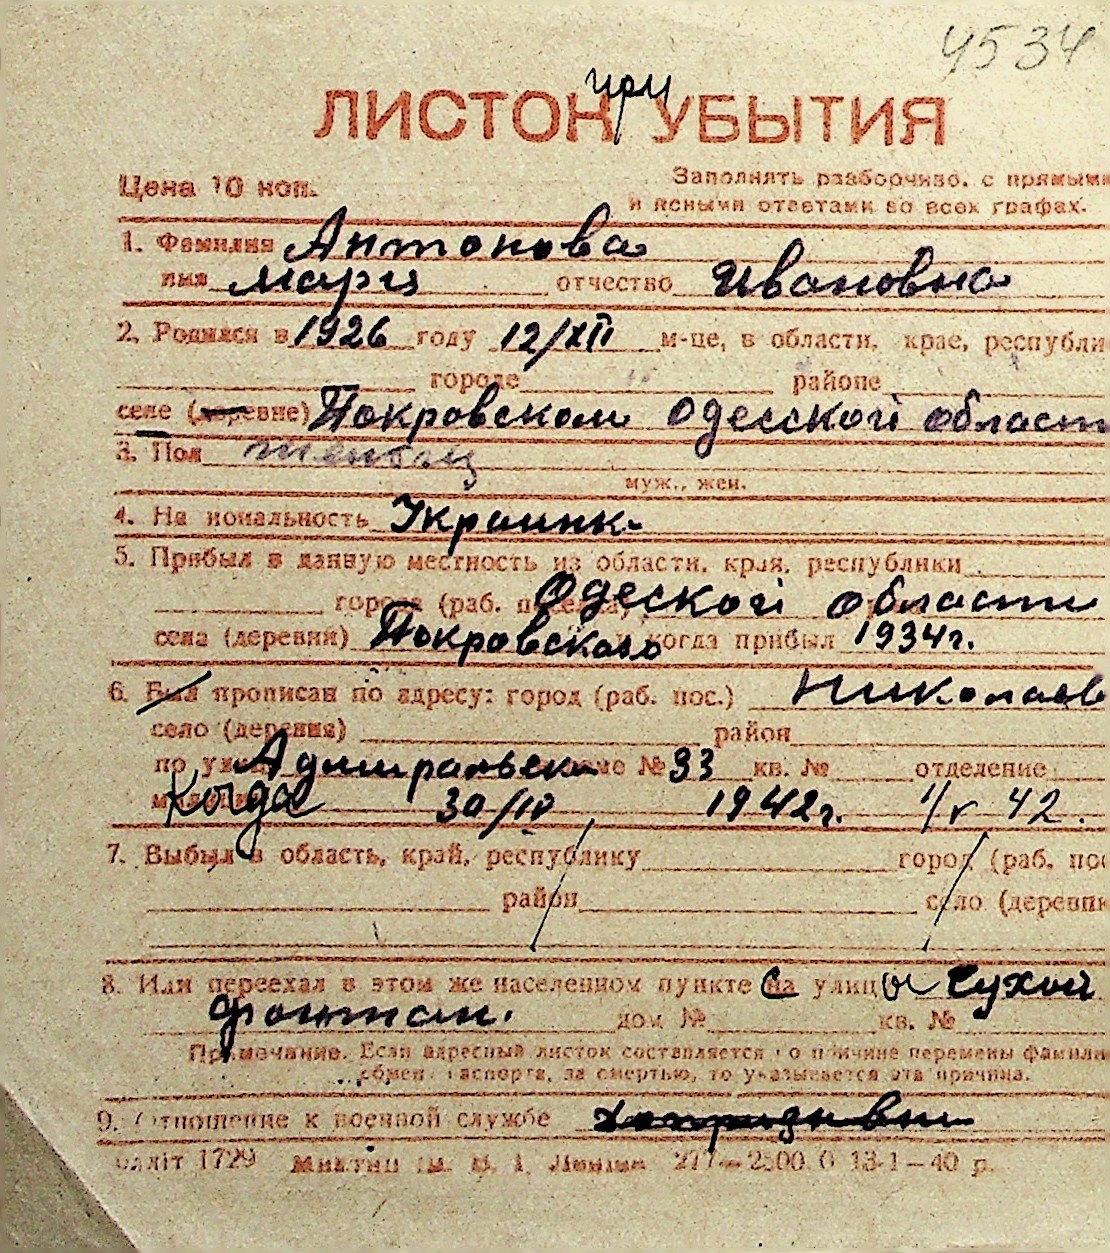 4534
при
ЛИСТОК УБЫТИЯ
Цена 10 коп. Заполнять разборчиво, с прямыми
и ясными ответами во всех графах.
1. Фамилия Антонова
имя Мария отчество Ивановна
2. Родился в 1926 году 12/XII м-це, в области, крае, республи
городе районе
селе (деревне) Покровском Одесской област
3. Пол
муж., жен.
4. На иональность Украинк
5. Прибыл в данную местность из области, края, республики
города (раб. поселка) Одеской области
села (деревни) Покровского когда прибыл 1934г.
6. Был прописан по адресу: город (раб. пос.) Николаев
село (деревня) район
по улице Адмиральск № 33 кв. № отделение
Когда 30/IV 1942г. 1/V 42.
7. Выбыл в область, край, республику город (раб. пос
район село (деревн
8. Или переехал в этом же населенном пункте с улицы Сухой
фонтан. дом № кв. №
Примечание. Если адресный листок составляется по причине перемены фамили
обмен паспорта, за смертью, то указывается эта причина.
9. Отношение к военной службе
олліт 1729 277—2500.0 13-1—40 р.